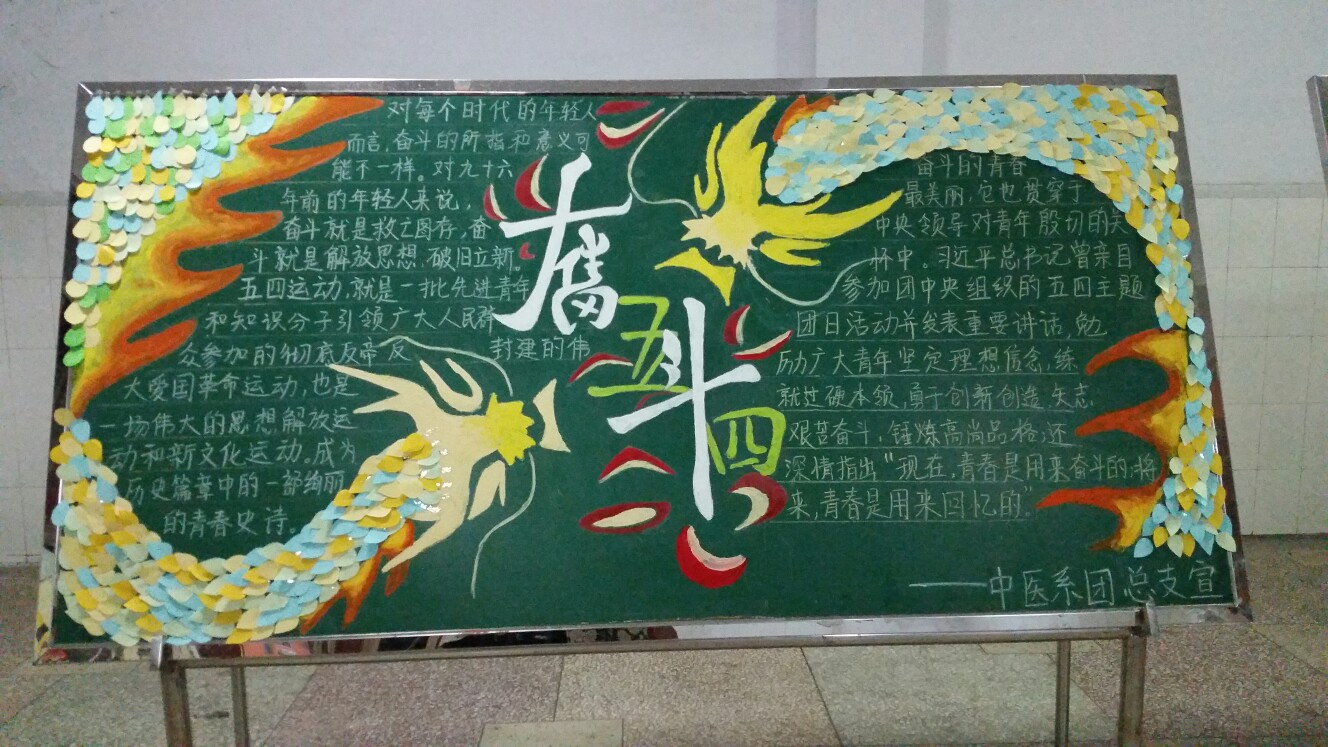 对每个时代的年轻人
而言,奋斗的所指和意义可
能不一样。对九十六
年前的年轻人来说,
奋斗就是救亡图存,奋
斗就是解放思想 破旧立新。
五四运动,就是一批先进青年
和知识分子引领广大人民群
众参加的彻底反帝反封建的伟
大爱国革命运动,也是
一场伟大的思想解放运
动和新文化运动,成为
历史篇章中的一部绚丽
的青春史诗。
奋斗
五四
奋斗的青春
最美丽,它也贯穿于
中央领导对青年殷切的关
怀中。习近平总书记曾亲自
参加团中央组织的五四主题
团日活动并发表重要讲话,勉
励广大青年坚定理想信念,练
就过硬本领,勇于创新创造,矢志
艰苦奋斗,锤炼高尚品格;还
深情指出“现在,青春是用来奋斗的;将
来,青春是用来回忆的”
——中医系团总支宣